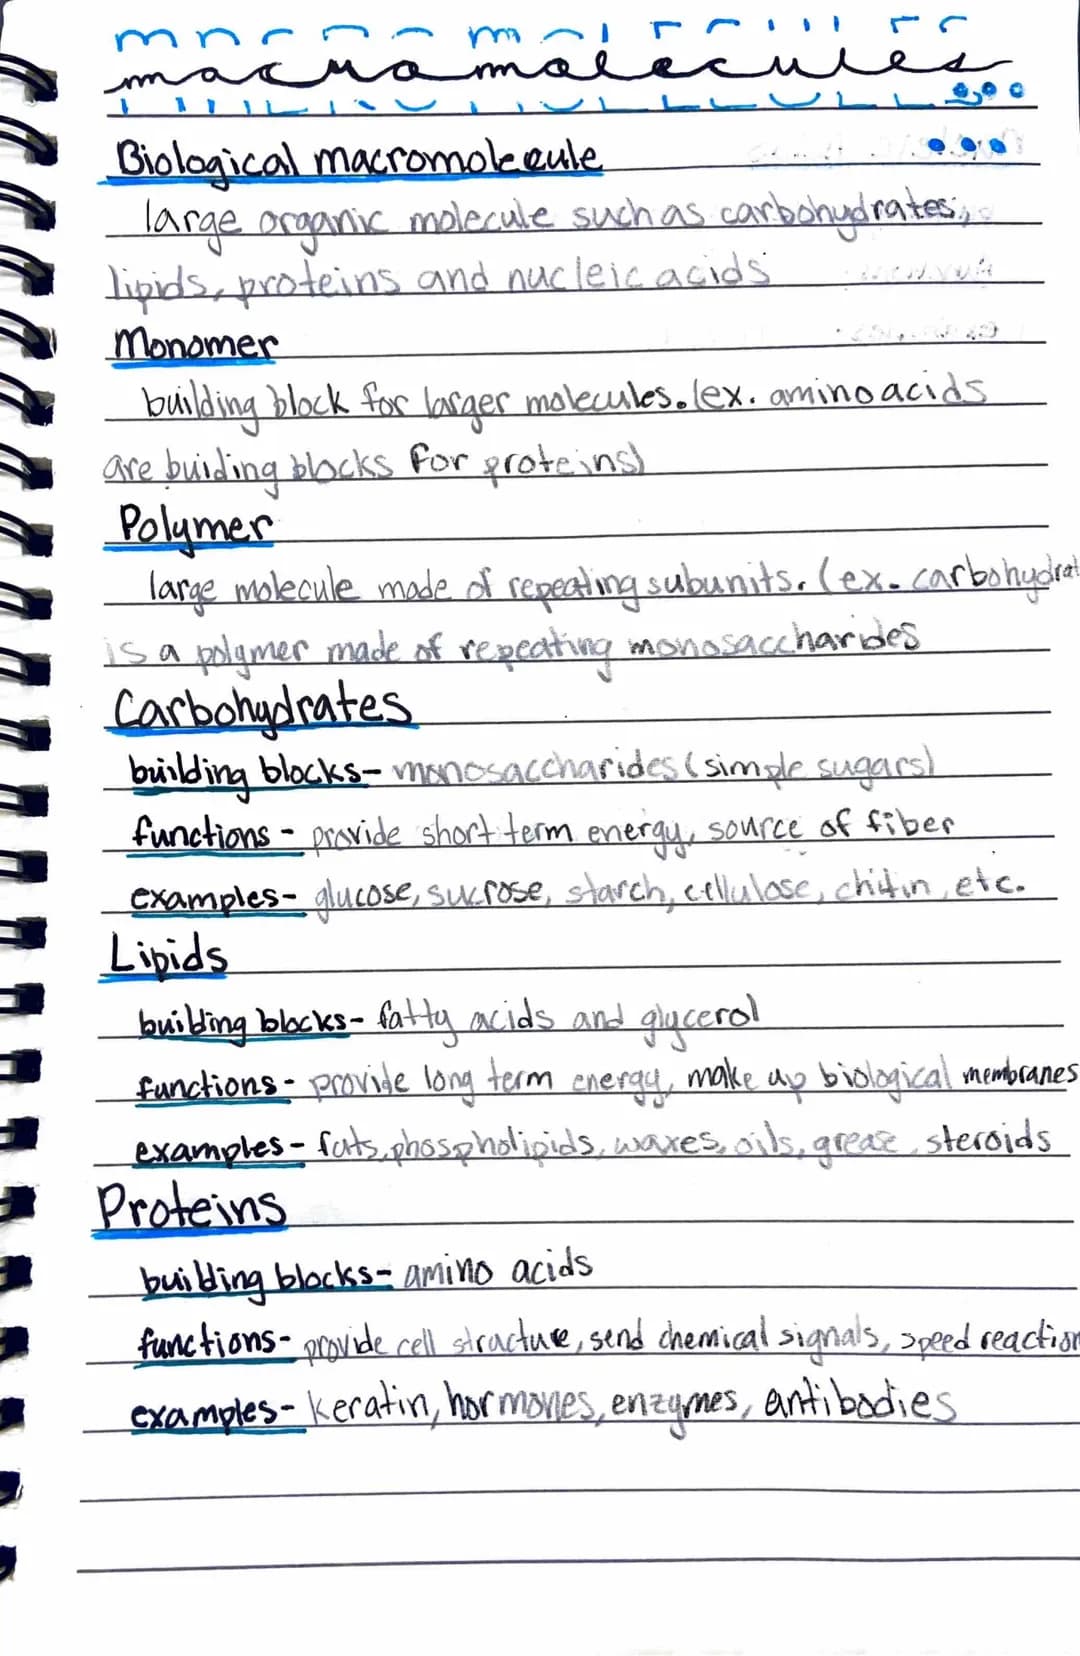 macromolecules
Biological macromolecule
large organic molecule such as carbohydrates,
lipids, proteins and nucleic acids
Monomer
building block for larger molecules. (ex. amino acids
are buiding blocks for proteins)
Polymer
large molecule made of repeating subunits. (ex- carbohydrat
is a polymer made of repeating monosaccharides
Carbohydrates
building blocks- monosaccharides (simple sugars)
functions - provide short term energy, source of fiber
examples- glucose, sucrose, starch, cellulose, chitin, etc.
Lipids
building blocks- fatty acids and glycerol
functions - provide long term energy, make up biological membranes
examples- fats, phospholipids, waxes, oils, grease, steroids
Proteins
building blocks- amino acids
functions- provide cell structure, send chemical signals, speed reaction
examples- keratin, hormones, enzymes, antibodies